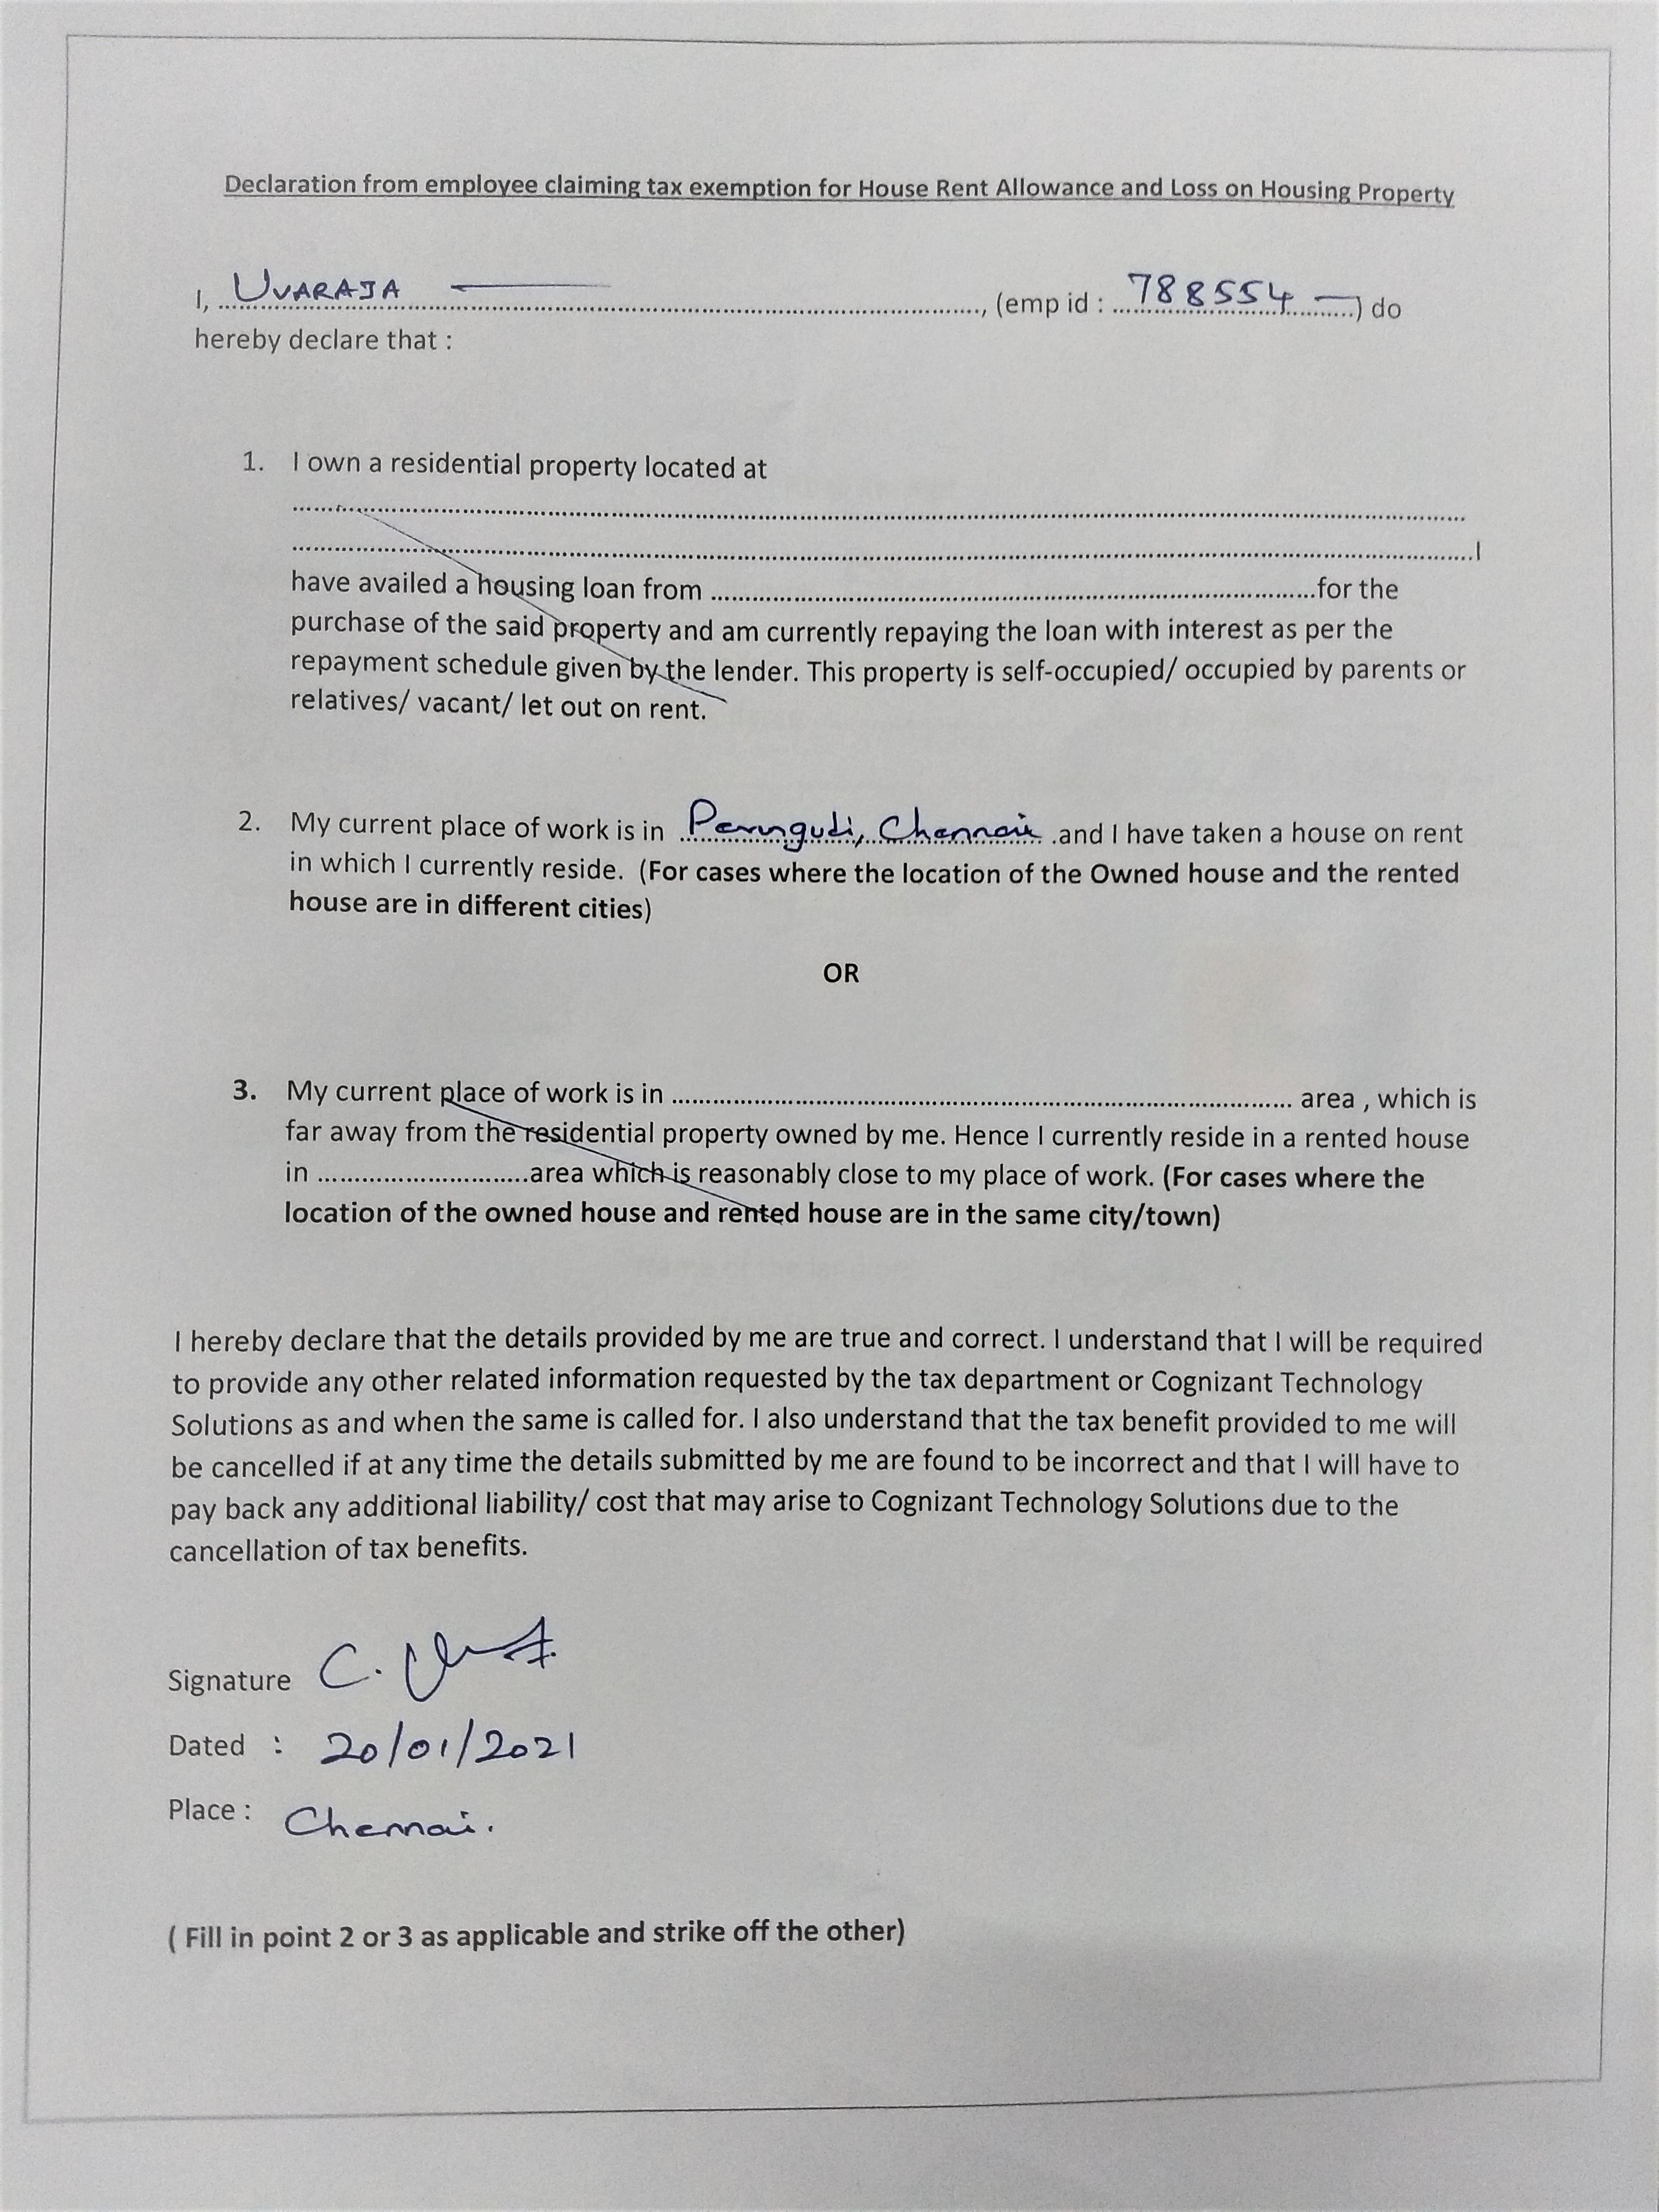 Declaration from employee claiming tax exemption for House Rent Allowance and Loss on Housing Property
I, UVARAJA ........................, (emp id : 788554 ) do
hereby declare that :
1. I own a residential property located at
........................
........................I
have availed a housing loan from ........................for the
purchase of the said property and am currently repaying the loan with interest as per the
repayment schedule given by the lender. This property is self-occupied/ occupied by parents or
relatives/ vacant/ let out on rent.
2. My current place of work is in Perungudi, Chennai and I have taken a house on rent
in which I currently reside. (For cases where the location of the Owned house and the rented
house are in different cities)
OR
3. My current place of work is in ........................ area , which is
far away from the residential property owned by me. Hence I currently reside in a rented house
in ........................area which is reasonably close to my place of work. (For cases where the
location of the owned house and rented house are in the same city/town)
I hereby declare that the details provided by me are true and correct. I understand that I will be required
to provide any other related information requested by the tax department or Cognizant Technology
Solutions as and when the same is called for. I also understand that the tax benefit provided to me will
be cancelled if at any time the details submitted by me are found to be incorrect and that I will have to
pay back any additional liability/ cost that may arise to Cognizant Technology Solutions due to the
cancellation of tax benefits.
Signature C.
Dated : 20/01/2021
Place : Chennai.
( Fill in point 2 or 3 as applicable and strike off the other)